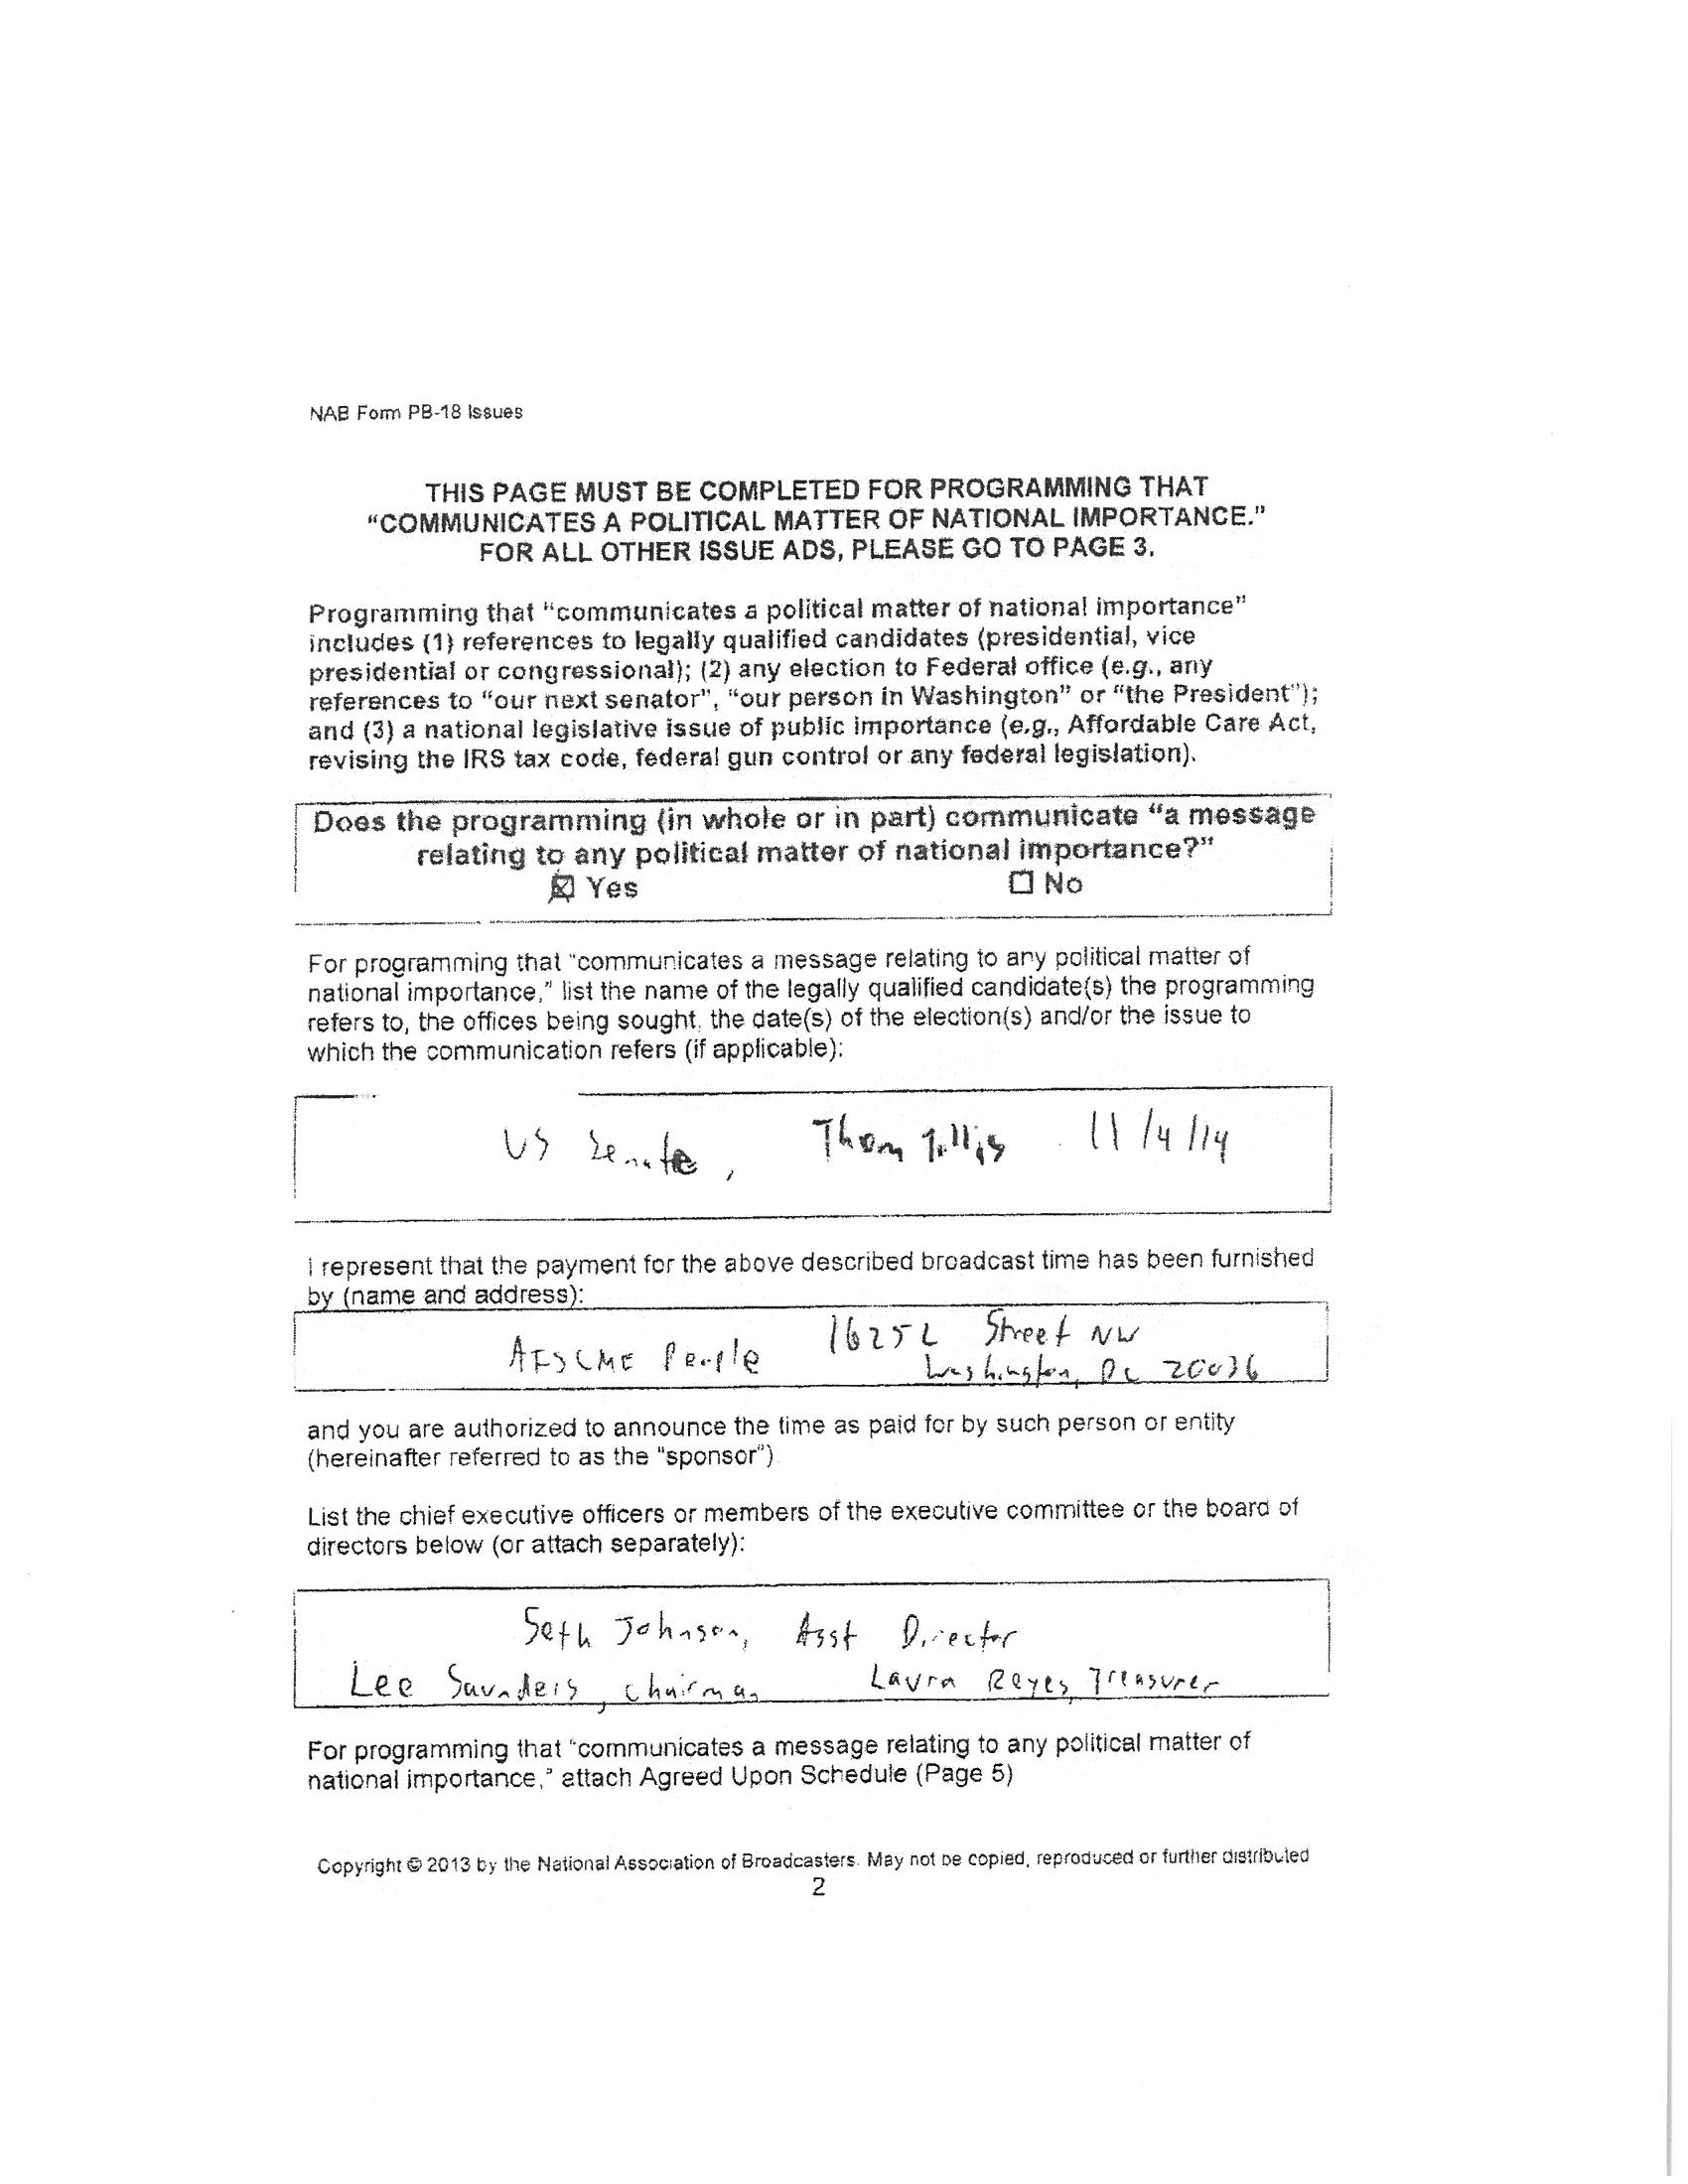 NAB Form PB-18 Issues
THIS PAGE MUST BE COMPLETED FOR PROGRAMMING THAT
"COMMUNICATES A POLITICAL MATTER OF NATIONAL IMPORTANCE."
FOR ALL OTHER ISSUE ADS, PLEASE GO TO PAGE 3.
Programming that "communicates a political matter of national importance"
includes (1) references to legally qualified candidates (presidential, vice
presidential or congressional); (2) any election to Federal office (e.g., any
references to "our next senator", "our person in Washington" or "the President");
and (3) a national legislative issue of public importance (e.g., Affordable Care Act,
revising the IRS tax code, federal gun control or any federal legislation).
Does the programming (in whole or in part) communicate "a message
relating to any political matter of national importance?"
☒ Yes ☐ No
For programming that "communicates a message relating to any political matter of
national importance," list the name of the legally qualified candidate(s) the programming
refers to, the offices being sought, the date(s) of the election(s) and/or the issue to
which the communication refers (if applicable):
US Senate, Thom Tillis 11/4/14
I represent that the payment for the above described broadcast time has been furnished
by (name and address):
AFSCME People 1625 L Street NW
Washington, DC 20036
and you are authorized to announce the time as paid for by such person or entity
(hereinafter referred to as the "sponsor")
List the chief executive officers or members of the executive committee or the board of
directors below (or attach separately):
Seth Johnson, Asst Director
Lee Saunders, Chairman Laura Reyes, Treasurer
For programming that "communicates a message relating to any political matter of
national importance," attach Agreed Upon Schedule (Page 5)
Copyright © 2013 by the National Association of Broadcasters. May not be copied, reproduced or further distributed
2